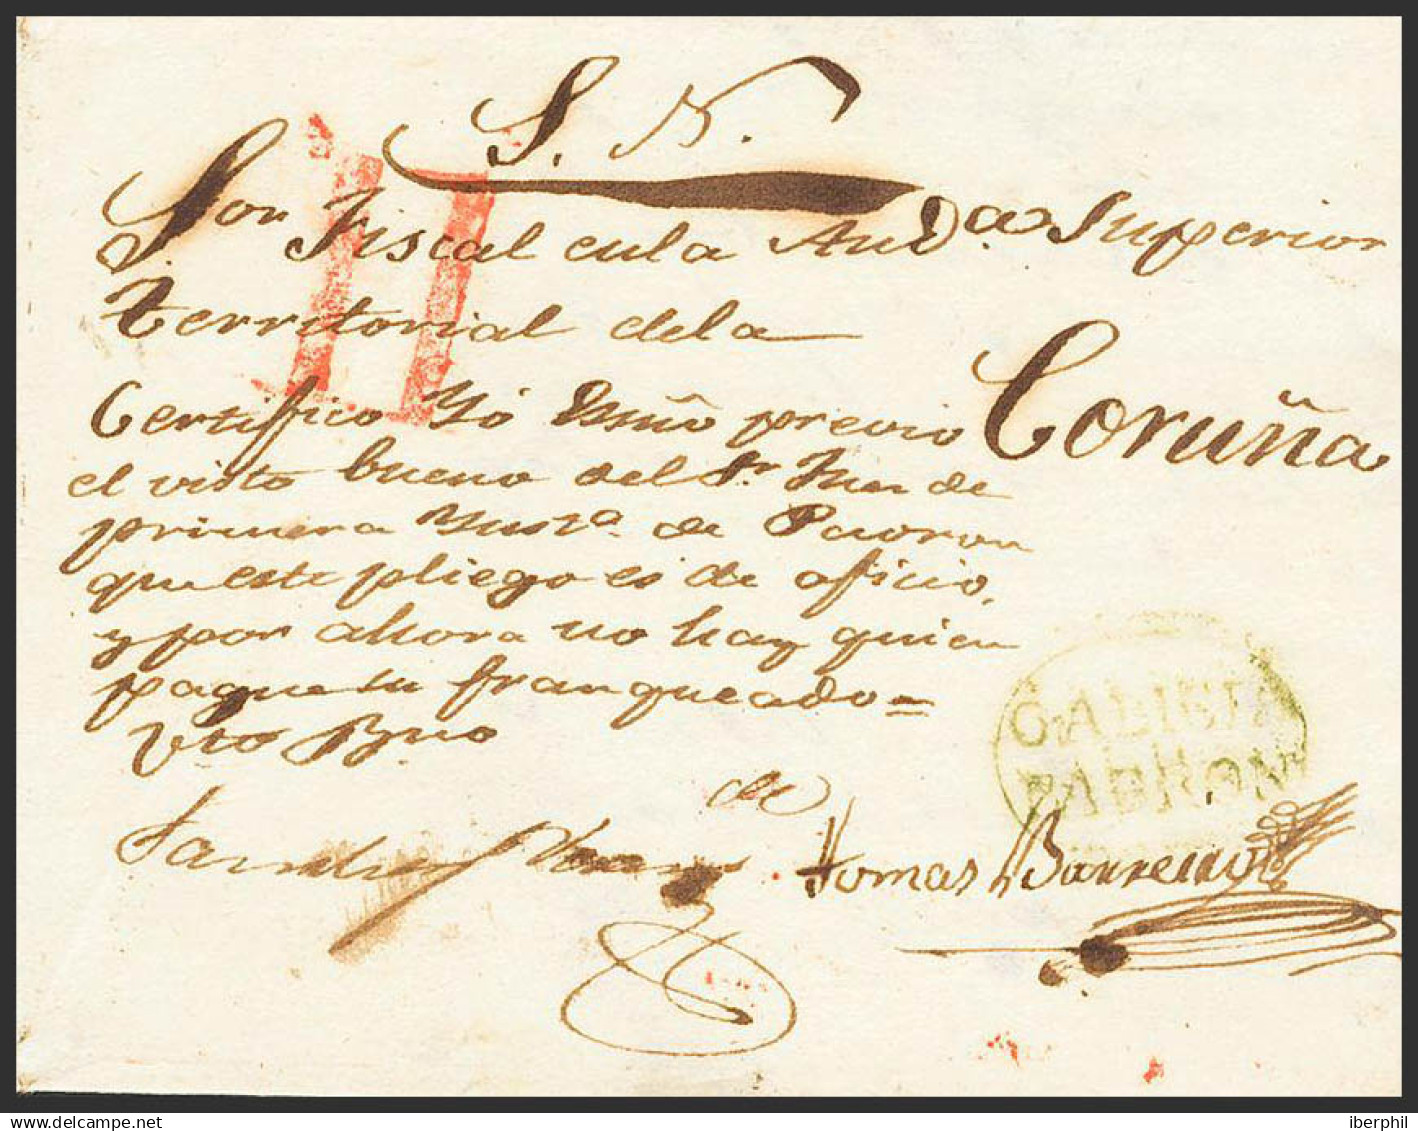 S. N.
Sor Fiscal enla Auda Superior
Territorial dela
Coruña
Certifico Yó Essnõ previo
el visto bueno del Sr. Juez de
primera Ynsta. de Padron
que este pliego es de oficio,
y por ahora no hay quien
pague su franqueado=
Vto Bno
de
Tomas Barreiro
GALICIA
PADRON
delcampe.net
iberphil